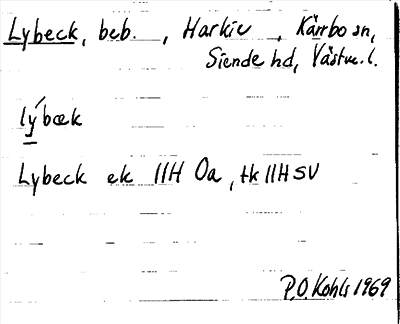 Lybeck, beb. , Harkie , Kärrbo sn,
Siende hd, Västm. l.
lý́bæk
Lybeck ek 11H 0a, tk 11H SV
P.O. Kohls 1969